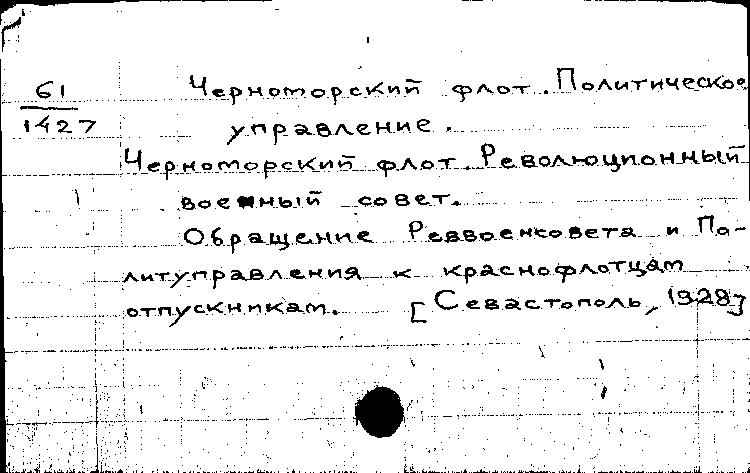 61
1427
Черноморский флот. Политическое
управление.
Черноморский флот. Революционный
военный совет.
Обращение Реввоенсовета и По-
литуправления к краснофлотцам
отпускникам. [Севастополь, 1928]